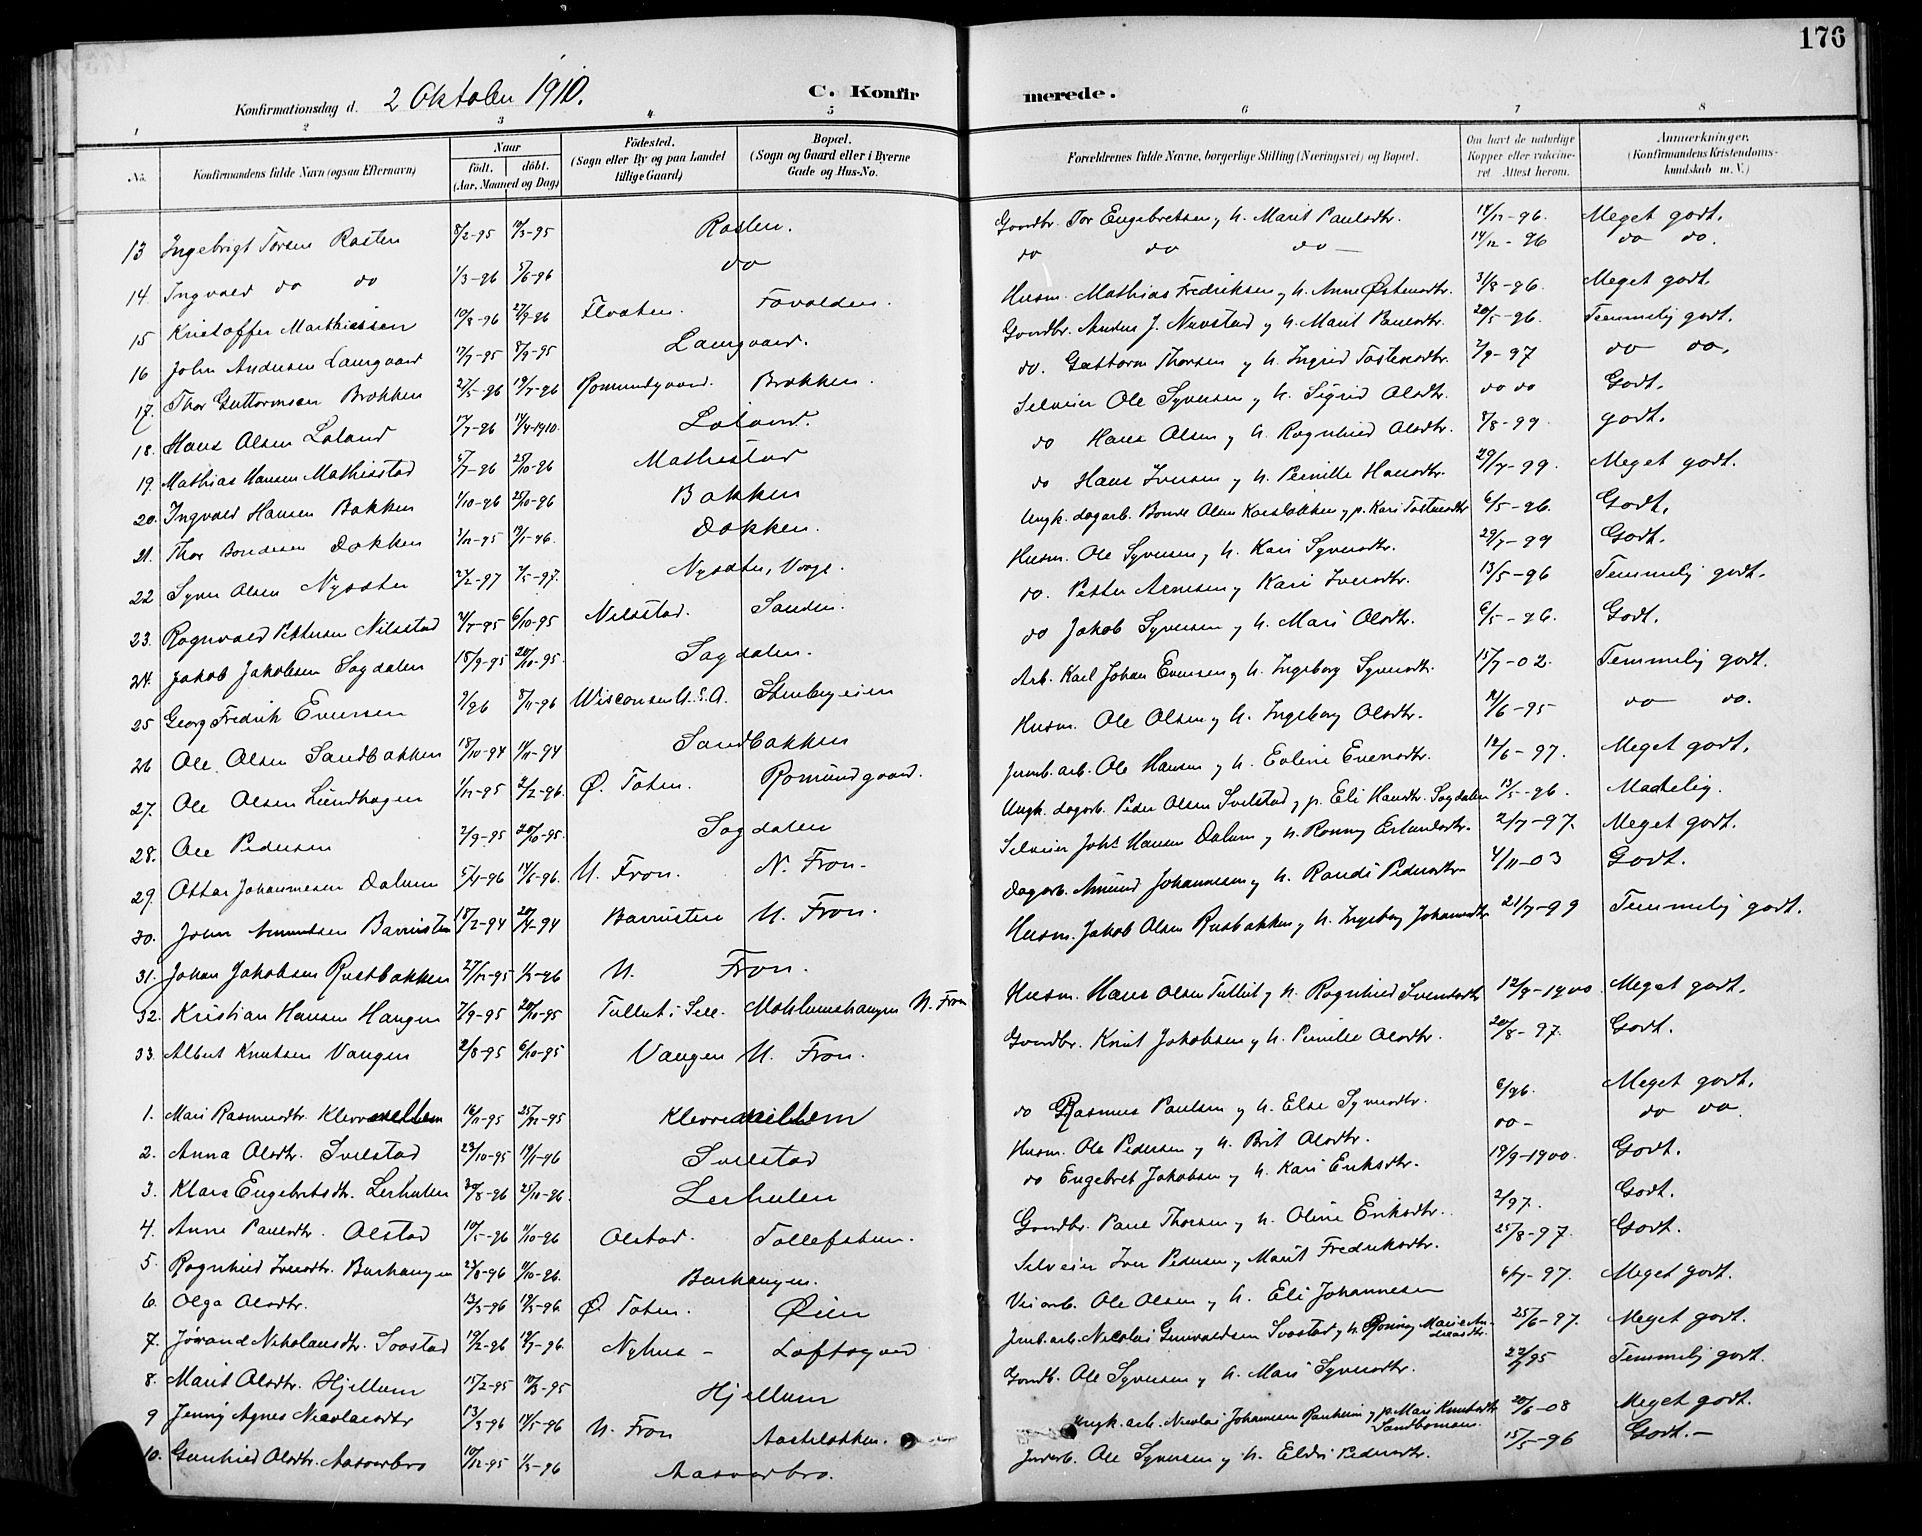 176
Konfirmationsdag d. 2 Oktober 1910. C. Konfirmerede.
1 2 3 4 5 6 7 8
No. Konfirmandens fulde Navn (ogsaa Efternavn) Naar født. døbt. (Aar, Maaned og Dag) Fødested. (Sogn eller By og paa Landet tillige Gaard) Bopæl. (Sogn og Gaard eller i Byerne Gade og Hus-No. Forældrenes fulde Navne, borgerlige Stilling (Næringsvei) og Bopæl. Om havt de naturlige Kopper eller vakcineret. Attest herom. Anmærkninger. (Konfirmandens Kristendomskundskab m. V.)
13 Ingebrigt Torsen Rosten 8/2-95 10/3-95 Rosten. Gaardbr. Tor Engebretsen y h. Marit Paulsdtr. 14/12-96. Meget godt.
14. Ingvald do do 1/3-96 5/6-96 do do do do 14/12-96 do do.
15 Kristoffer Mathiassen 10/8-96 27/9-96 Flaaten. Husm. Mathias Fredriksen y h. Anne Østensdtr. 31/8-96. Meget godt.
16 John Andersen Laurgaard 17/7-95 8/9-95 Laurgaard. Gaardbr. Anders J. y h. Marit Paulsdtr. 20/5-96. Temmelig godt.
17. Thor Guttormsen Brekken 27/5-96 19/7-96 Romundgaard. Brekken. do. Guttorm Thorsen y h. Ingrid Tostensdtr. 2/9-97 do do.
18. Hans Olsen Loland 17/7-96 17/4-1910. Loland. Selveier Ole Syversen y h. Sigrid Olsdtr. do do Godt.
19. Mathias Hansen Mathiestad 5/7-96 25/10-96 Mathiestad do Hans Olsen y h. Ragnhild Olsdtr. 8/8-99. godt.
20. Ingvald Hansen Bakken 1/10-96 25/10-96 Bakken do Hans Iversen y h. Pernille Hansdtr. 29/7-99. Meget godt.
21. Thor Bondesen Dokken 2/12-95 Dokken. Ungk. dagarb. Bonde Olsen y p. Kari Tostensdtr 6/5-96. Godt.
22 Syver Olsen Nysæter 27/2-97 7/5-97. Nysæter, Husm. Ole Syversen y h. Kari Syversdtr. 29/7-99 Godt.
23. Ragnvald Pettersen Nilsstad 4/7-95 6/10-95 Nilsstad. Sanden. do. Petter Arnesen y Kari Iversdtr. 13/5-96 Temmelig godt.
24. Jakob Jakobsen Sagdalen 18/9-95 20/10-95. Sagdalen. do Jakob Syversen y h. Mari Olsdtr. 6/5-96. Godt.
25 Georg Fredrik Evensen 7/96 8/11-96 Wisconsen U.S.A. Stenbyeien Arb. Karl Johan Evensen y h. Ingeborg Syversdtr. 15/7-02. Temmelig godt.
26 Ole Olsen Sandbakken 18/10-94 11/11-94 Sandbakken Husm. Ole Olsen y h. Ingeborg Olsdtr. 12/6-95 do do.
27. Ole Olsen Lundhagen 1/12-95 2/2-96. Ø. Toten. Romundgaard. Jernb. arb. Ole Hansen y h. Eoline Evensdtr. 12/6-97. Meget godt.
28. Ole Pedersen 7/9-95 20/10-95. Sagdalen Ungk. dagarb. Peder Olsen Svelstad y p. Eli Hansdtr. Sagdalen 13/5-96. Maadelig.
29. Ottar Johannesen Dalum 5/4-96 14/6-96. N. Fron. N. Fron. Selveier Johs Hansen Dalum y h. Ronnoy Erlandsdtr. 2/7-97. Meget godt.
30. John Amundsen Barrusten 18/2-94 20/4-94 Barrusten N. Fron. Dagarb. Amund Johannesen y h. Randi Pedersdtr. 4/11-03 Godt.
31. Johan Jakobsen Rustbakken 27/12-95 1/3-96 N. Fron. Husm. Jakob Olsen Rusbakken y h. Ingeborg Johannesdtr 21/7-99 Temmelig godt.
32. Kristian Hansen Haugen 7/9-95 20/10-95 Tullut i Sell. N. Fron Husm. Hans Olsen Tullut y h. Ragnhild Svendsdtr 12/9-1900. Meget godt.
33. Albert Knutsen Vangen 2/8-95 6/10-95 Vangen N. Fron. Gaardbr. Knut Jakobsen y h. Pernille Olsdtr. 20/8-97. Godt.
1. Mari Rasmusdtr. Kleivmellem 16/11-95 25/12-95 Kleivmellem do Rasmus Paulsen y h. Else Syversdtr. 6/96. Meget godt.
2. Anna Olsdtr. Svelstad 23/10-95 19/1-96 Svelstad Husm. Ole Pedersen y h. Brit Olsdtr. do- do do.
3. Klara Engebretsdtr. Lerhulen 30/8-96 25/10-96. Lerhulen do Engebret Jakobsen y h. Kari Eriksdtr. 19/9-1900. Godt.
4. Anne Paulsdtr. Olstad 10/5-96 11/10-96 Olstad. Tollefstuen. Gaardbr. Paul Thorsen y h. Oline Eriksdtr. 2/97. Godt.
5. Ragnhild Iversdtr. Burhaugen 23/8-96 11/10-96. Burhaugen. Selveier Iver Pedersen y Marit Fredriksdtr. 25/8-97. Godt.
6. Olga Olsdtr. 13/3-96 19/5-96 Ø. Toten. Øien Veiarb. Ole Olsen y h. Eli Johannesen 6/7-97. Meget godt.
7. Jørand Nikolausdtr. Svastad 19/2-96 12/7-96. Nyhus - Loftsgaard Jernb. arb. Nicolai Gunvaldsen Svastad y h. Ronnoy Mari Andreasdtr. 25/6-97. Meget godt.
8. Marit Olsdtr. Hjellum 15/2-95 10/3-95 Hjellum Gaardb. Ole Syversen y h. Mari Syversdtr. 22/7 95 Temmelig godt.
9 Jenny Agnes Nicolaisdtr 13/3-96 14/5-96 N. Fron Aasteløkken. Ungk. arb. Nicolai Johansen Ranheim y p. Mari Knutsdtr Sandbomoen. 20/6-08 Meget godt.
10. Gunhild Olsdtr. Aasverbro 10/12-95 1/3-96 Aasverbro. Jernarb. Ole Syversen y h. Eldri Pedersdtr. 15/5-96 Godt.-